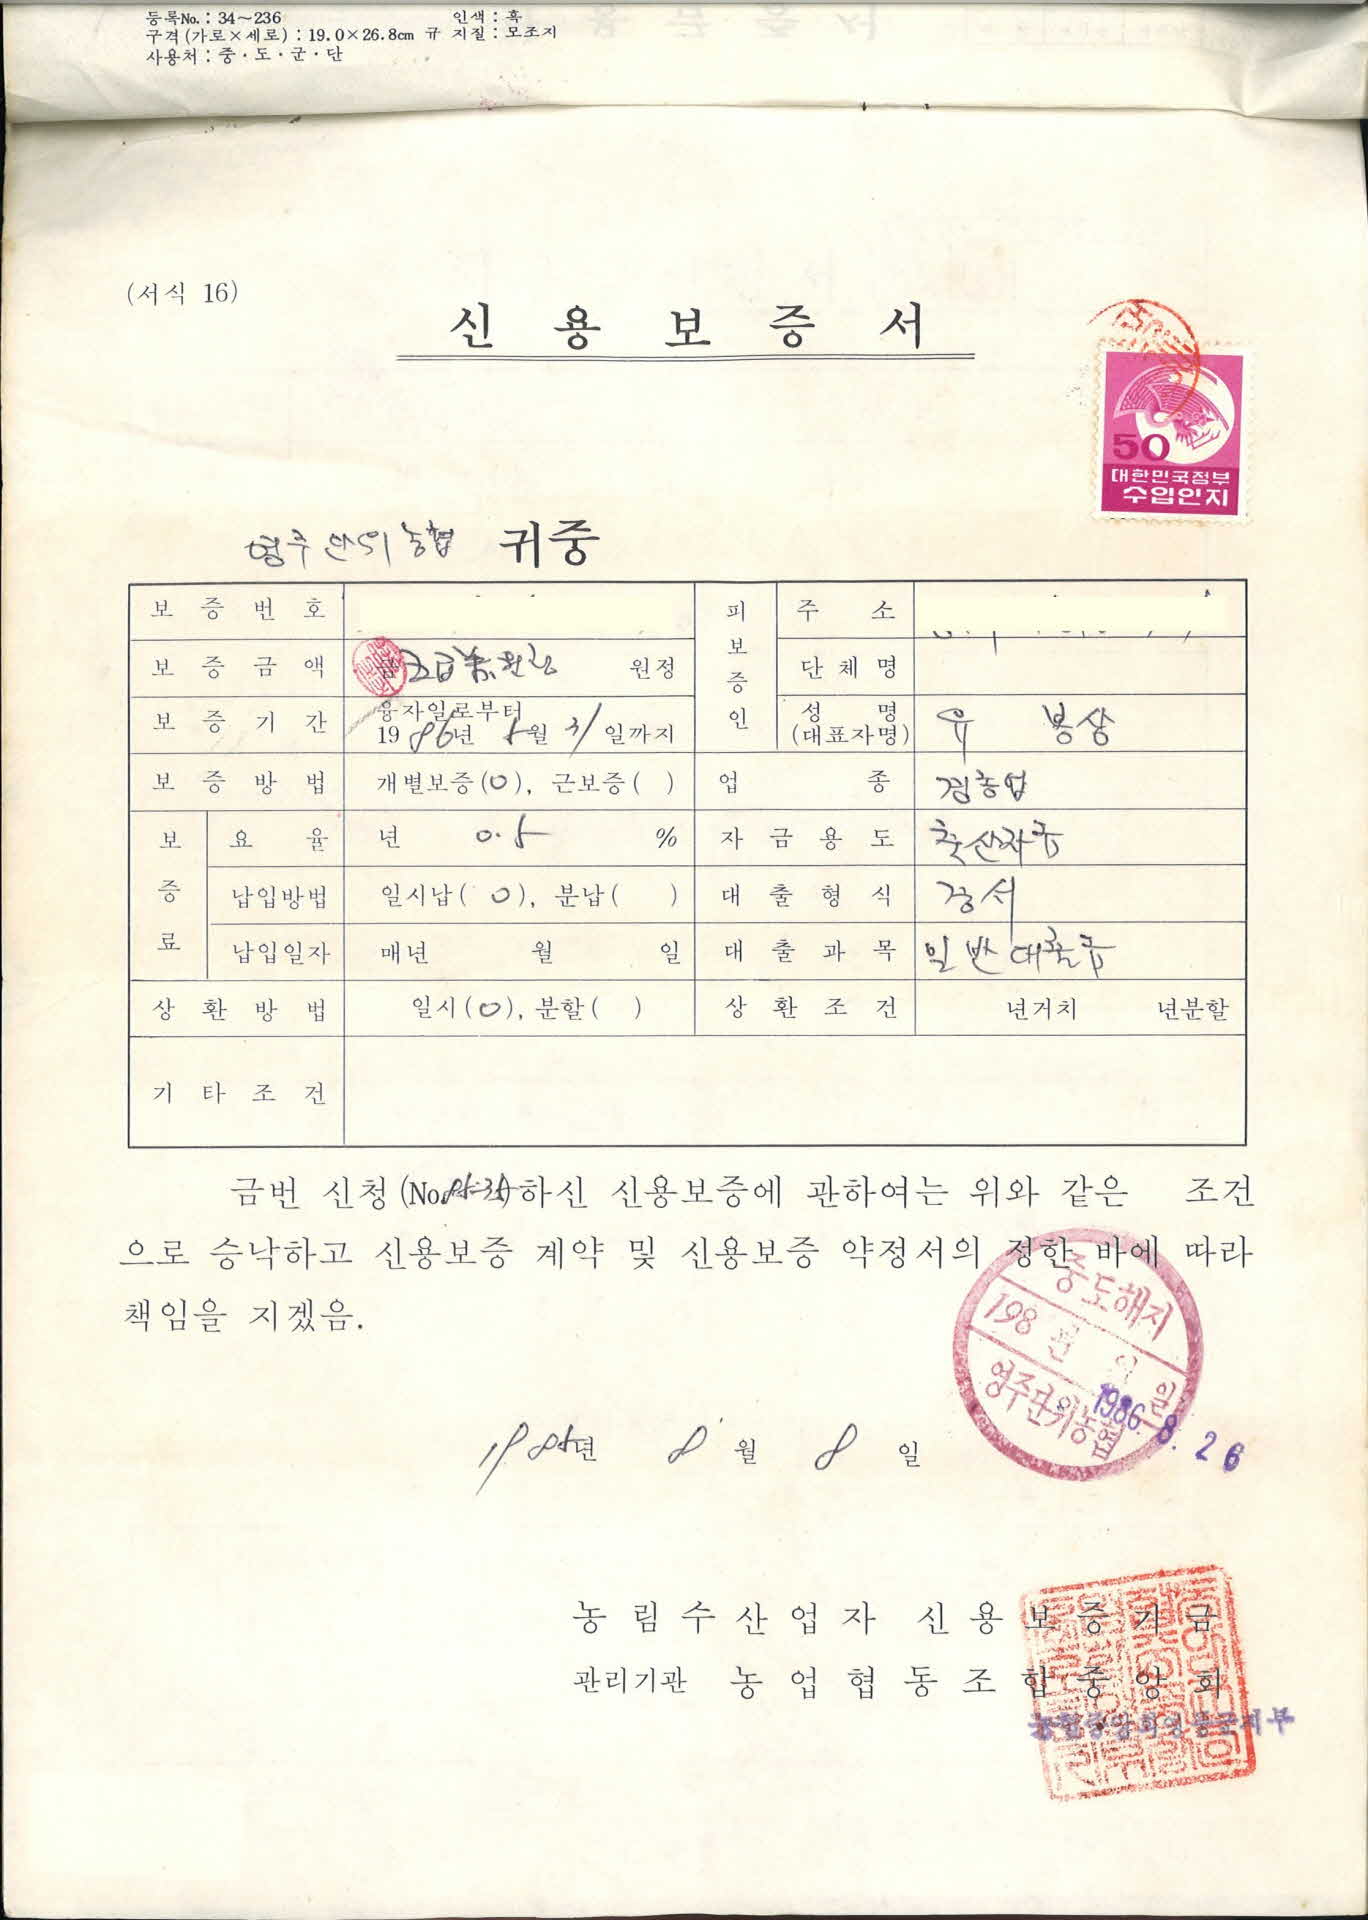 등록No. : 34~236 인색 : 흑
구격(가로×세로) : 19.0×26.8cm 규 지질 : 모조지
사용처 : 중·도·군·단
(서식 16)
신용보증서
50
대한민국정부
수입인지
영주단위농협 귀중
보증번호
피보증인 주소
보증금액 금 원정
단체명
보증기간 융자일로부터
1986년 5월 31일까지
성명
(대표자명) 유 봉상
보증방법 개별보증(O), 근보증( )
업종 겸농업
보증료 요율 년 0.5 %
자금용도 축산자금
납입방법 일시납( O), 분납( )
대출형식 증서
납입일자 매년 월 일
대출과목 일반대출금
상환방법 일시(O), 분할( )
상환조건 년거치 년분할
기타조건
금번 신청(No.85-35)하신 신용보증에 관하여는 위와 같은 조건
으로 승낙하고 신용보증 계약 및 신용보증 약정서의 정한 바에 따라
책임을 지겠음.
중도해지
198 년 월 일
영주단위농협
1986. 8. 26
1985년 8월 8일
농림수산업자 신용보증기금
관리기관 농업협동조합중앙회